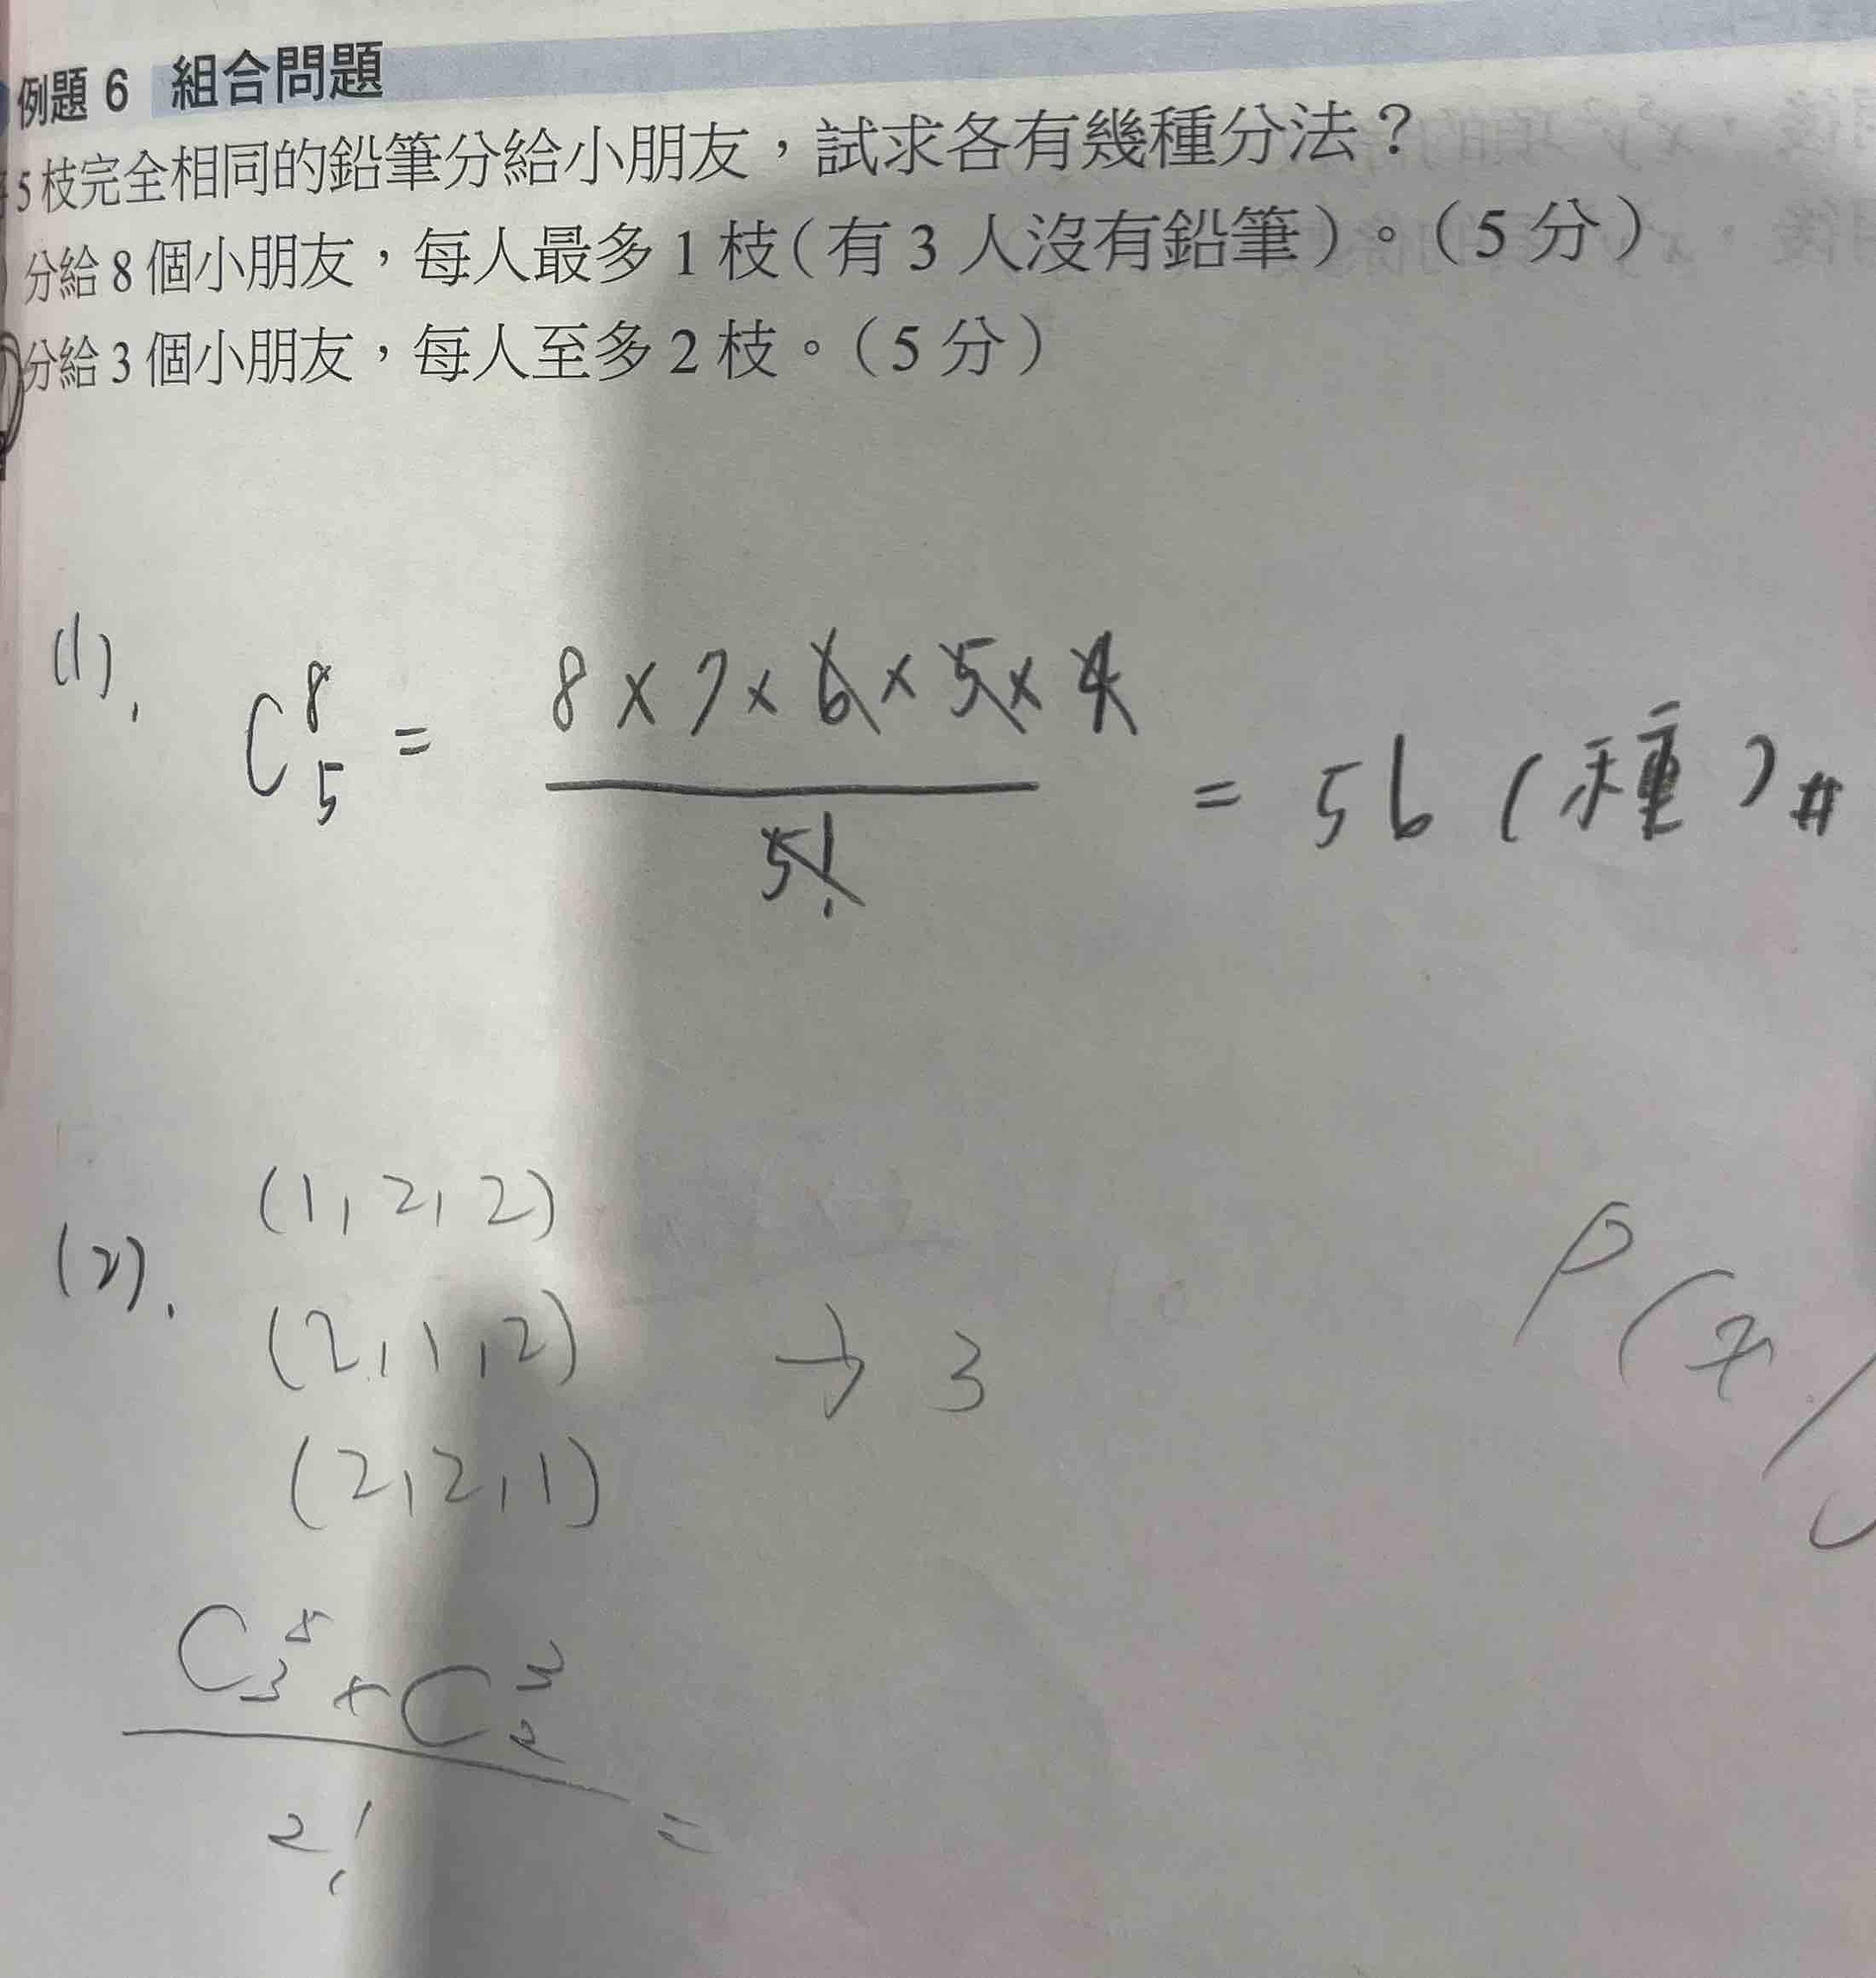 例題 6 組合問題
5 枝完全相同的鉛筆分給小朋友，試求各有幾種分法？
分給 8 個小朋友，每人最多 1 枝（有 3 人沒有鉛筆）。（5 分）
分給 3 個小朋友，每人至多 2 枝。（5 分）
(1). C⁸₅ = 8×7×6×5×4 / 5! = 56 (種) #
(1, 2, 2)
(2). (2, 1, 2) → 3
(2, 2, 1)
P(x
C₃ × C₂ / 2! =